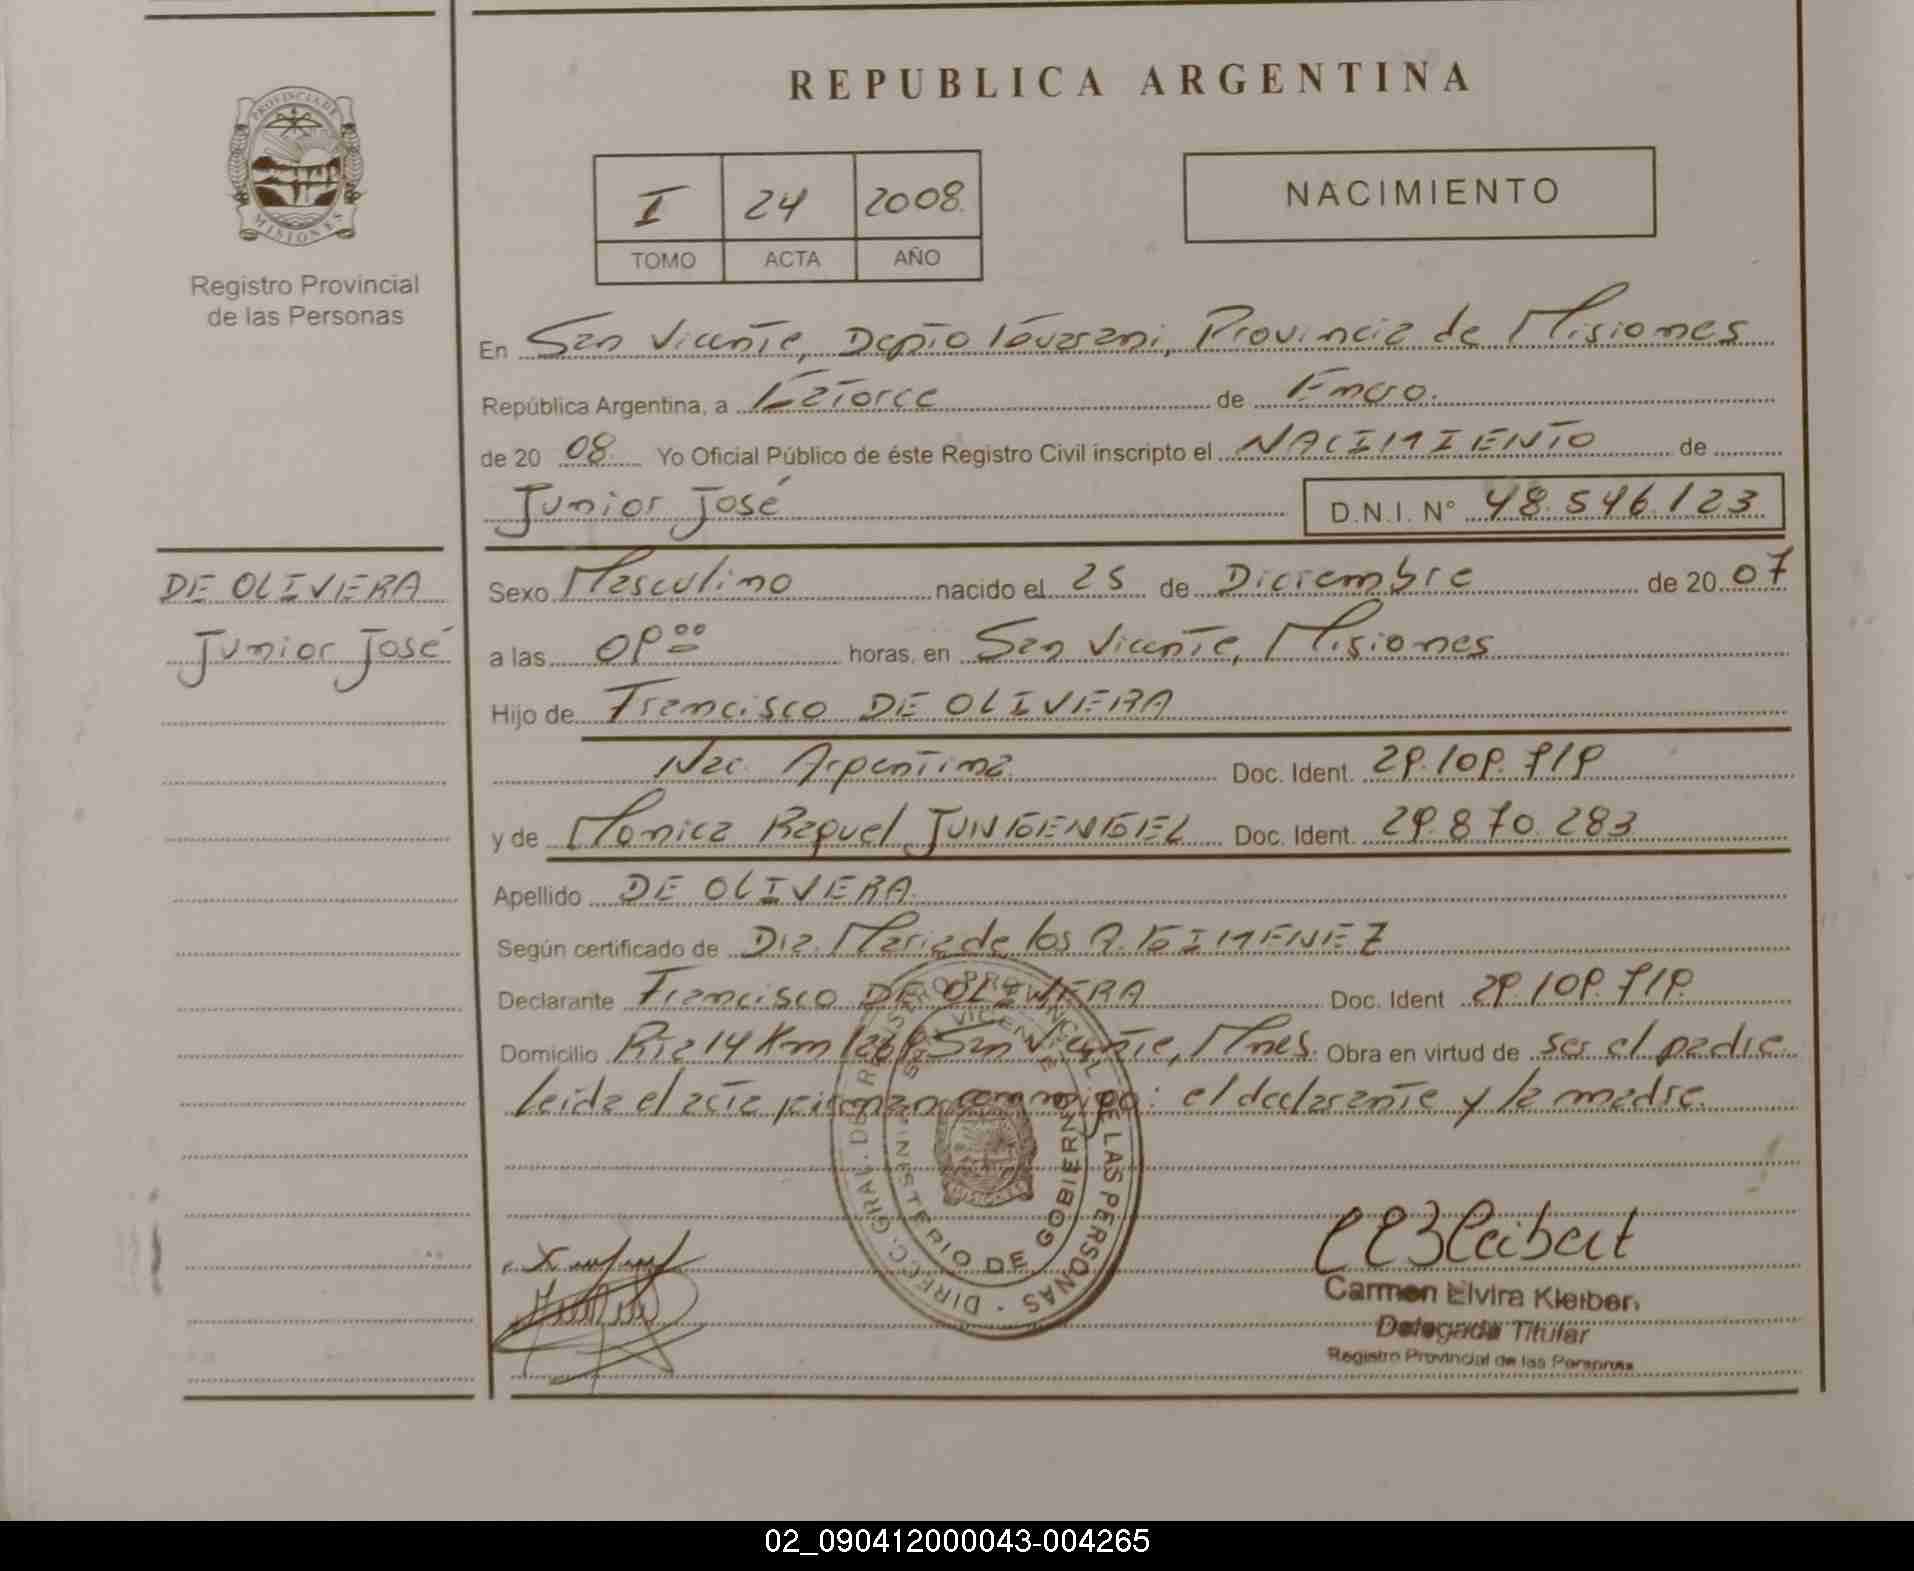 REPUBLICA ARGENTINA
PROVINCIA DE
MISIONES
Registro Provincial
de las Personas
I 24 2008
TOMO ACTA AÑO
NACIMIENTO
En San Vicente, Depto Guarani, Provincia de Misiones
República Argentina, a Catorce de Enero.
de 20 08. Yo Oficial Público de éste Registro Civil inscripto el NACIMIENTO de
Junior José D.N.I. N° 48.546.123
DE OLIVERA
Junior José
Sexo Masculino nacido el 25 de Diciembre de 20 07
a las 09 00 horas, en San Vicente, Misiones
Hijo de Francisco DE OLIVERA
Nac. Argentina Doc. Ident. 29.109.719
y de Monica Raquel JUNGENGEL Doc. Ident. 29.870.283
Apellido DE OLIVERA
Según certificado de Dra. Maria de los A. GIMENEZ
Declarante Francisco DE OLIVERA Doc. Ident 29.109.719.
Domicilio Rta 14 Km San Vicente, Mnes. Obra en virtud de ser el padre
leida el acta firman conmigo: el declarante y la madre.
DIREC. GRAL. DEL REGISTRO PROVINCIAL DE LAS PERSONAS
SAN VICENTE
MINISTERIO DE GOBIERNO
Carmen Elvira Kleibert
Delegada Titular
Registro Provincial de las Personas
02_090412000043-004265